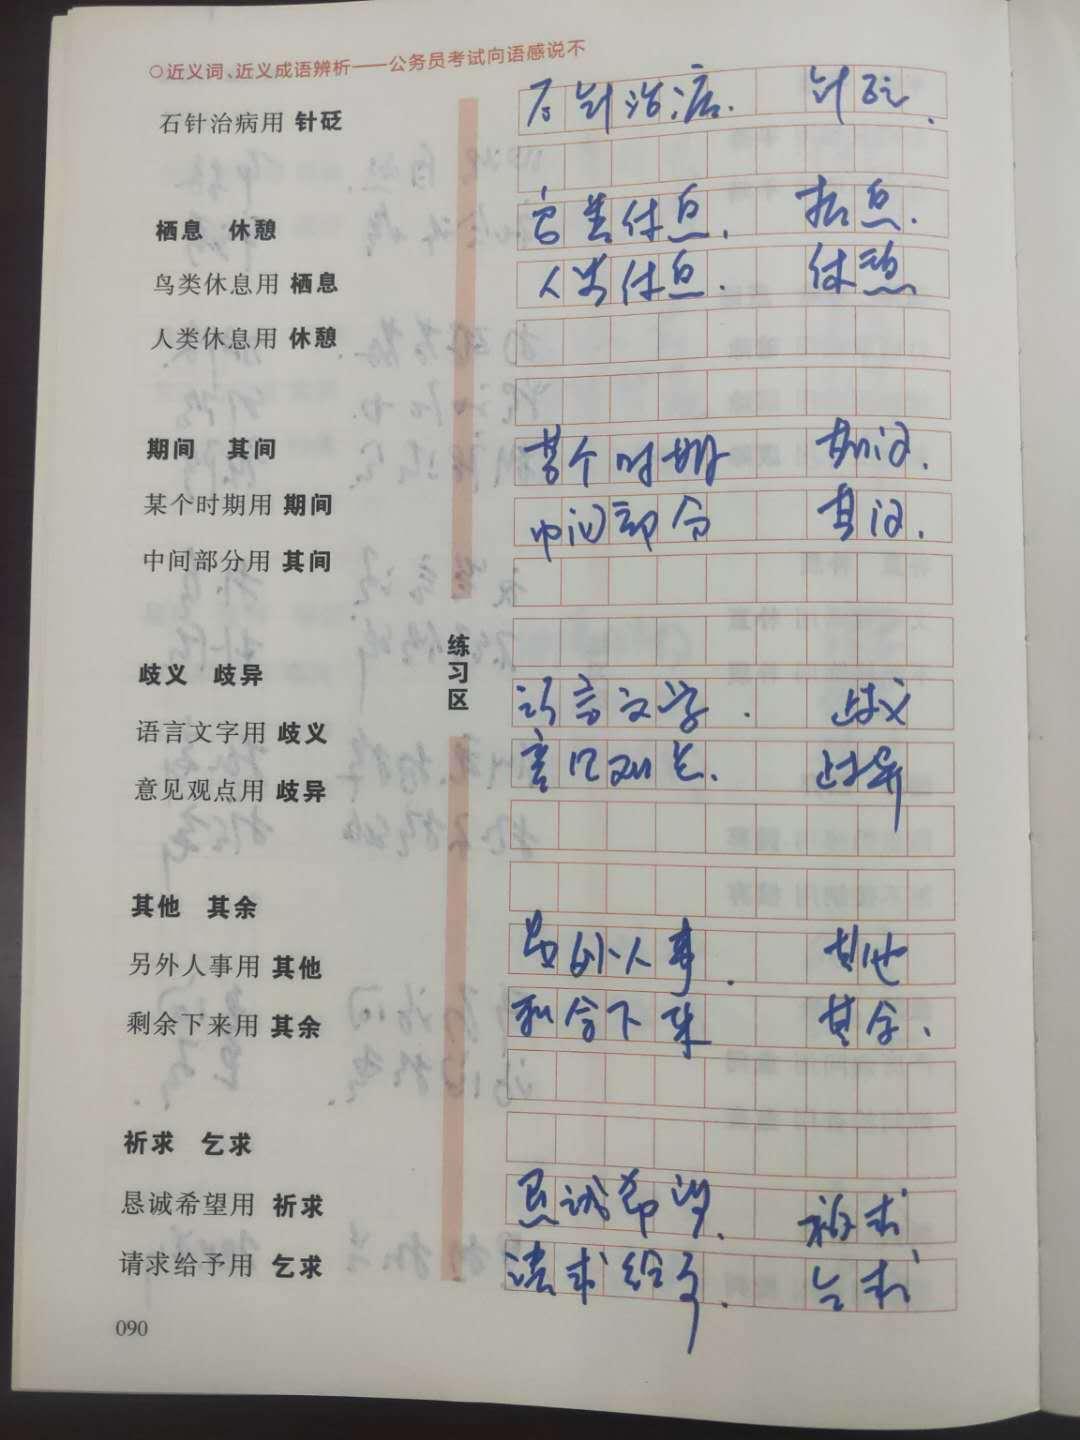 ○近义词、近义成语辨析——公务员考试向语感说不
石针治病用 针砭
石针治病. 针砭.
栖息 休憩
鸟类休息用 栖息
鸟类休息. 栖息.
人类休息用 休憩
人类休息. 休憩
期间 其间
某个时期用 期间
某个时期 期间.
中间部分用 其间
中间部分 其间.
练习区
歧义 歧异
语言文字用 歧义
语言文字. 歧义
意见观点用 歧异
意见观点. 歧异
其他 其余
另外人事用 其他
另外人事. 其他
剩余下来用 其余
剩余下来 其余.
祈求 乞求
恳诚希望用 祈求
恳诚希望. 祈求
请求给予用 乞求
请求给予. 乞求
090